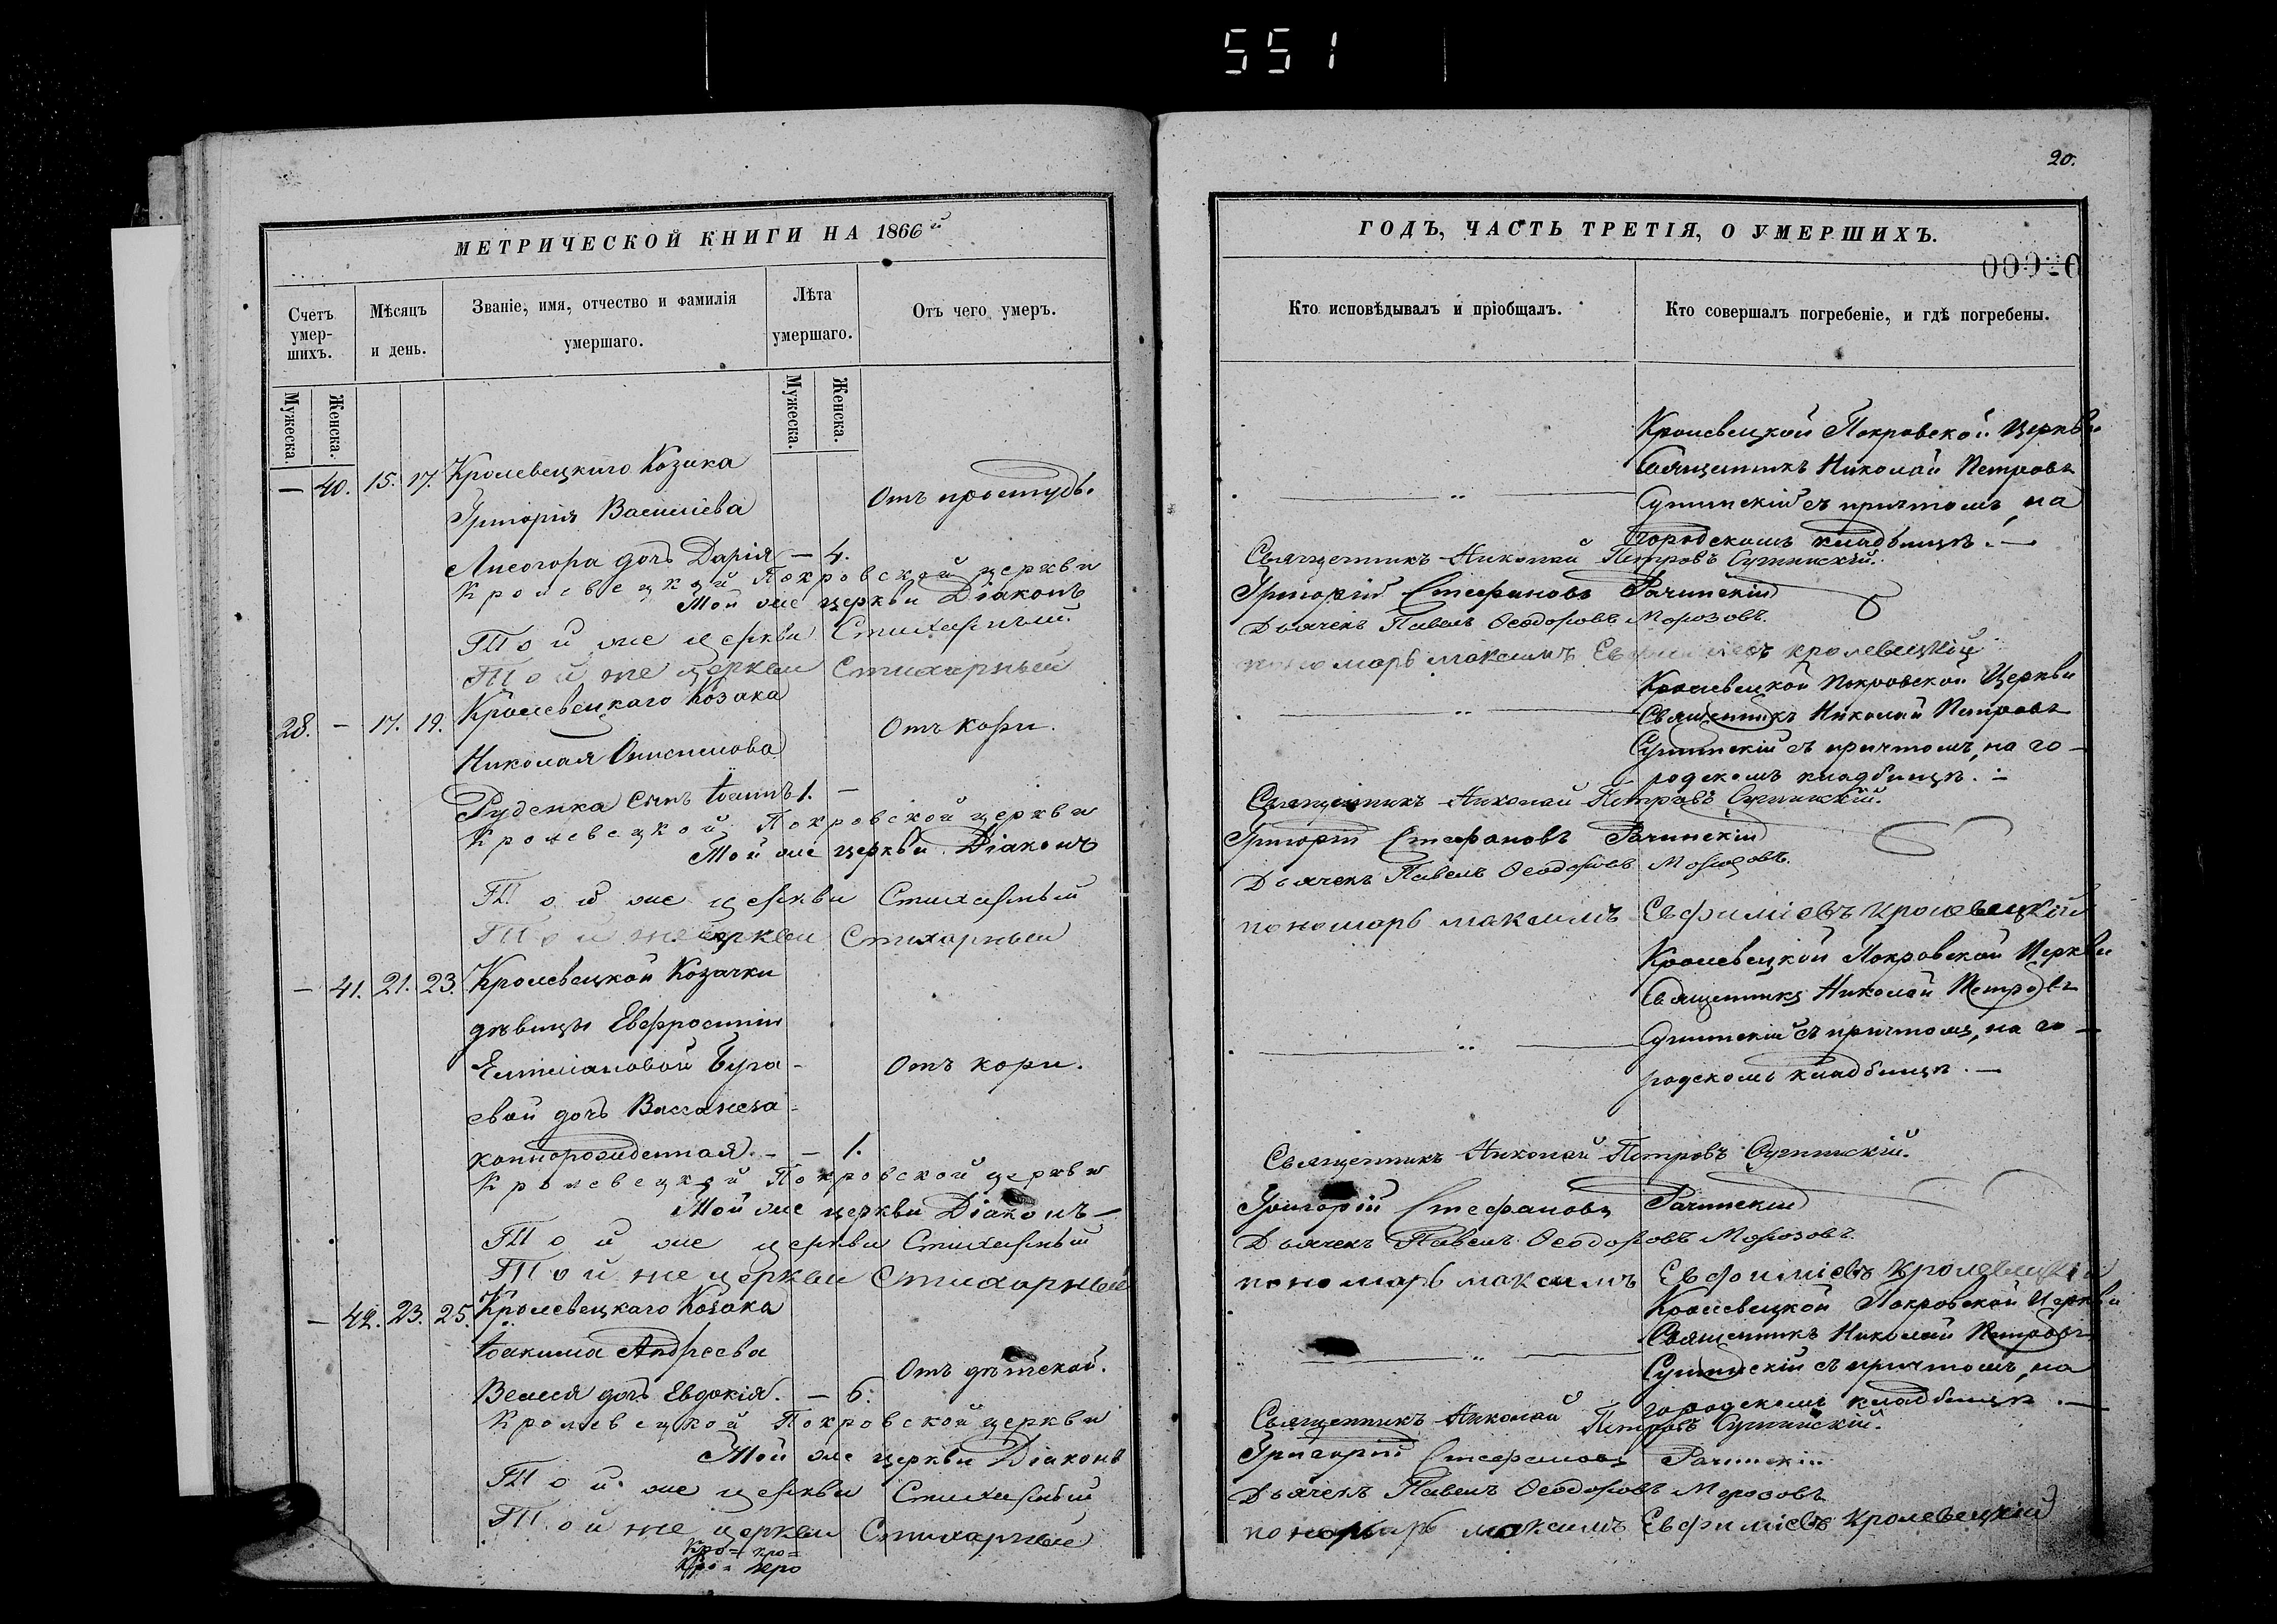 551
20.
МЕТРИЧЕСКОЙ КНИГИ НА 1866й
Счетъ умер-шихъ.
Мѣсяцъ и день.
Званіе, имя, отчество и фамилія умершаго.
Лѣта умершаго.
Отъ чего умеръ.
Мужеска.
Женска.
Мужеска.
Женска.
— 40. 15. 17. Кролевецкаго Козака
Григорія Василіева Отъ простуды.
Лисогора дочь Дарія — 4.
Кролевецкой Покровской церкви
Той же церкви Діаконъ
Той же церкви Стихарный
Той же церкви Стихарный
28. — 17. 19. Кролевецкаго Козака
Отъ кори.
Николая Онисимова
Руденка сынъ Іоаннъ 1. —
Кролевецкой Покровской церкви
Той же церкви Діаконъ
Той же церкви Стихарный
Той же церкви Стихарный
— 41. 21. 23. Кролевецкой Козачки
дѣвицы Евфросиніи
Емиліановой Буга- Отъ кори.
евой дочь Васса неза-
коннорожденная. — — 1.
Кролевецкой Покровской церкви
Той же церкви Діаконъ —
Той же церкви Стихарный
Той же церкви Стихарный
— 42. 23. 25. Кролевецкаго Козака
Іоакима Андреева
Отъ дѣтской.
дочь Евдокія. — 6.
Кролевецкой Покровской церкви
Той же церкви Діаконъ
Той же церкви Стихарный
Той же церкви Стихарный
Кро= кро=
Кро= кро
ГОДЪ, ЧАСТЬ ТРЕТІЯ, О УМЕРШИХЪ.
Кто исповѣдывалъ и пріобщалъ.
Кто совершалъ погребеніе, и гдѣ погребены.
Кролевецкой Покровской Церкви
Священникъ Николай Петровъ
съ причтомъ, на
городскомъ кладбищѣ. —
Священникъ Николай Петровъ
Григорій Стефановъ Рачинскій
Дьячекъ Павелъ Ѳеодоровъ Морозовъ.
пономарь максимъ Евфиміевъ кролевецкій
Кролевецкой Покровской Церкви
Священникъ Николай Петровъ
съ причтомъ, на го-
родскомъ кладбищѣ. —
Священникъ Николай Петровъ
Григорій Стефановъ Рачинскій
Дьячекъ Павелъ Ѳеодоровъ Морозовъ.
пономарь максимъ Евфиміевъ кролевецкій
Кролевецкой Покровской Церкви
Священникъ Николай Петровъ
съ причтомъ, на го-
родскомъ кладбищѣ. —
Священникъ Николай Петровъ
Григорій Стефановъ Рачинскій
Дьячекъ Павелъ Ѳеодоровъ Морозовъ.
пономарь максимъ Евфиміевъ кролевецкій
Кролевецкой Покровской Церкви
Священникъ Николай Петровъ
съ причтомъ, на
городскомъ кладбищѣ. —
Священникъ Николай Петровъ
Григорій Стефановъ Рачинскій
Дьячекъ Павелъ Ѳеодоровъ Морозовъ
пономарь максимъ Евфиміевъ кролевецкій